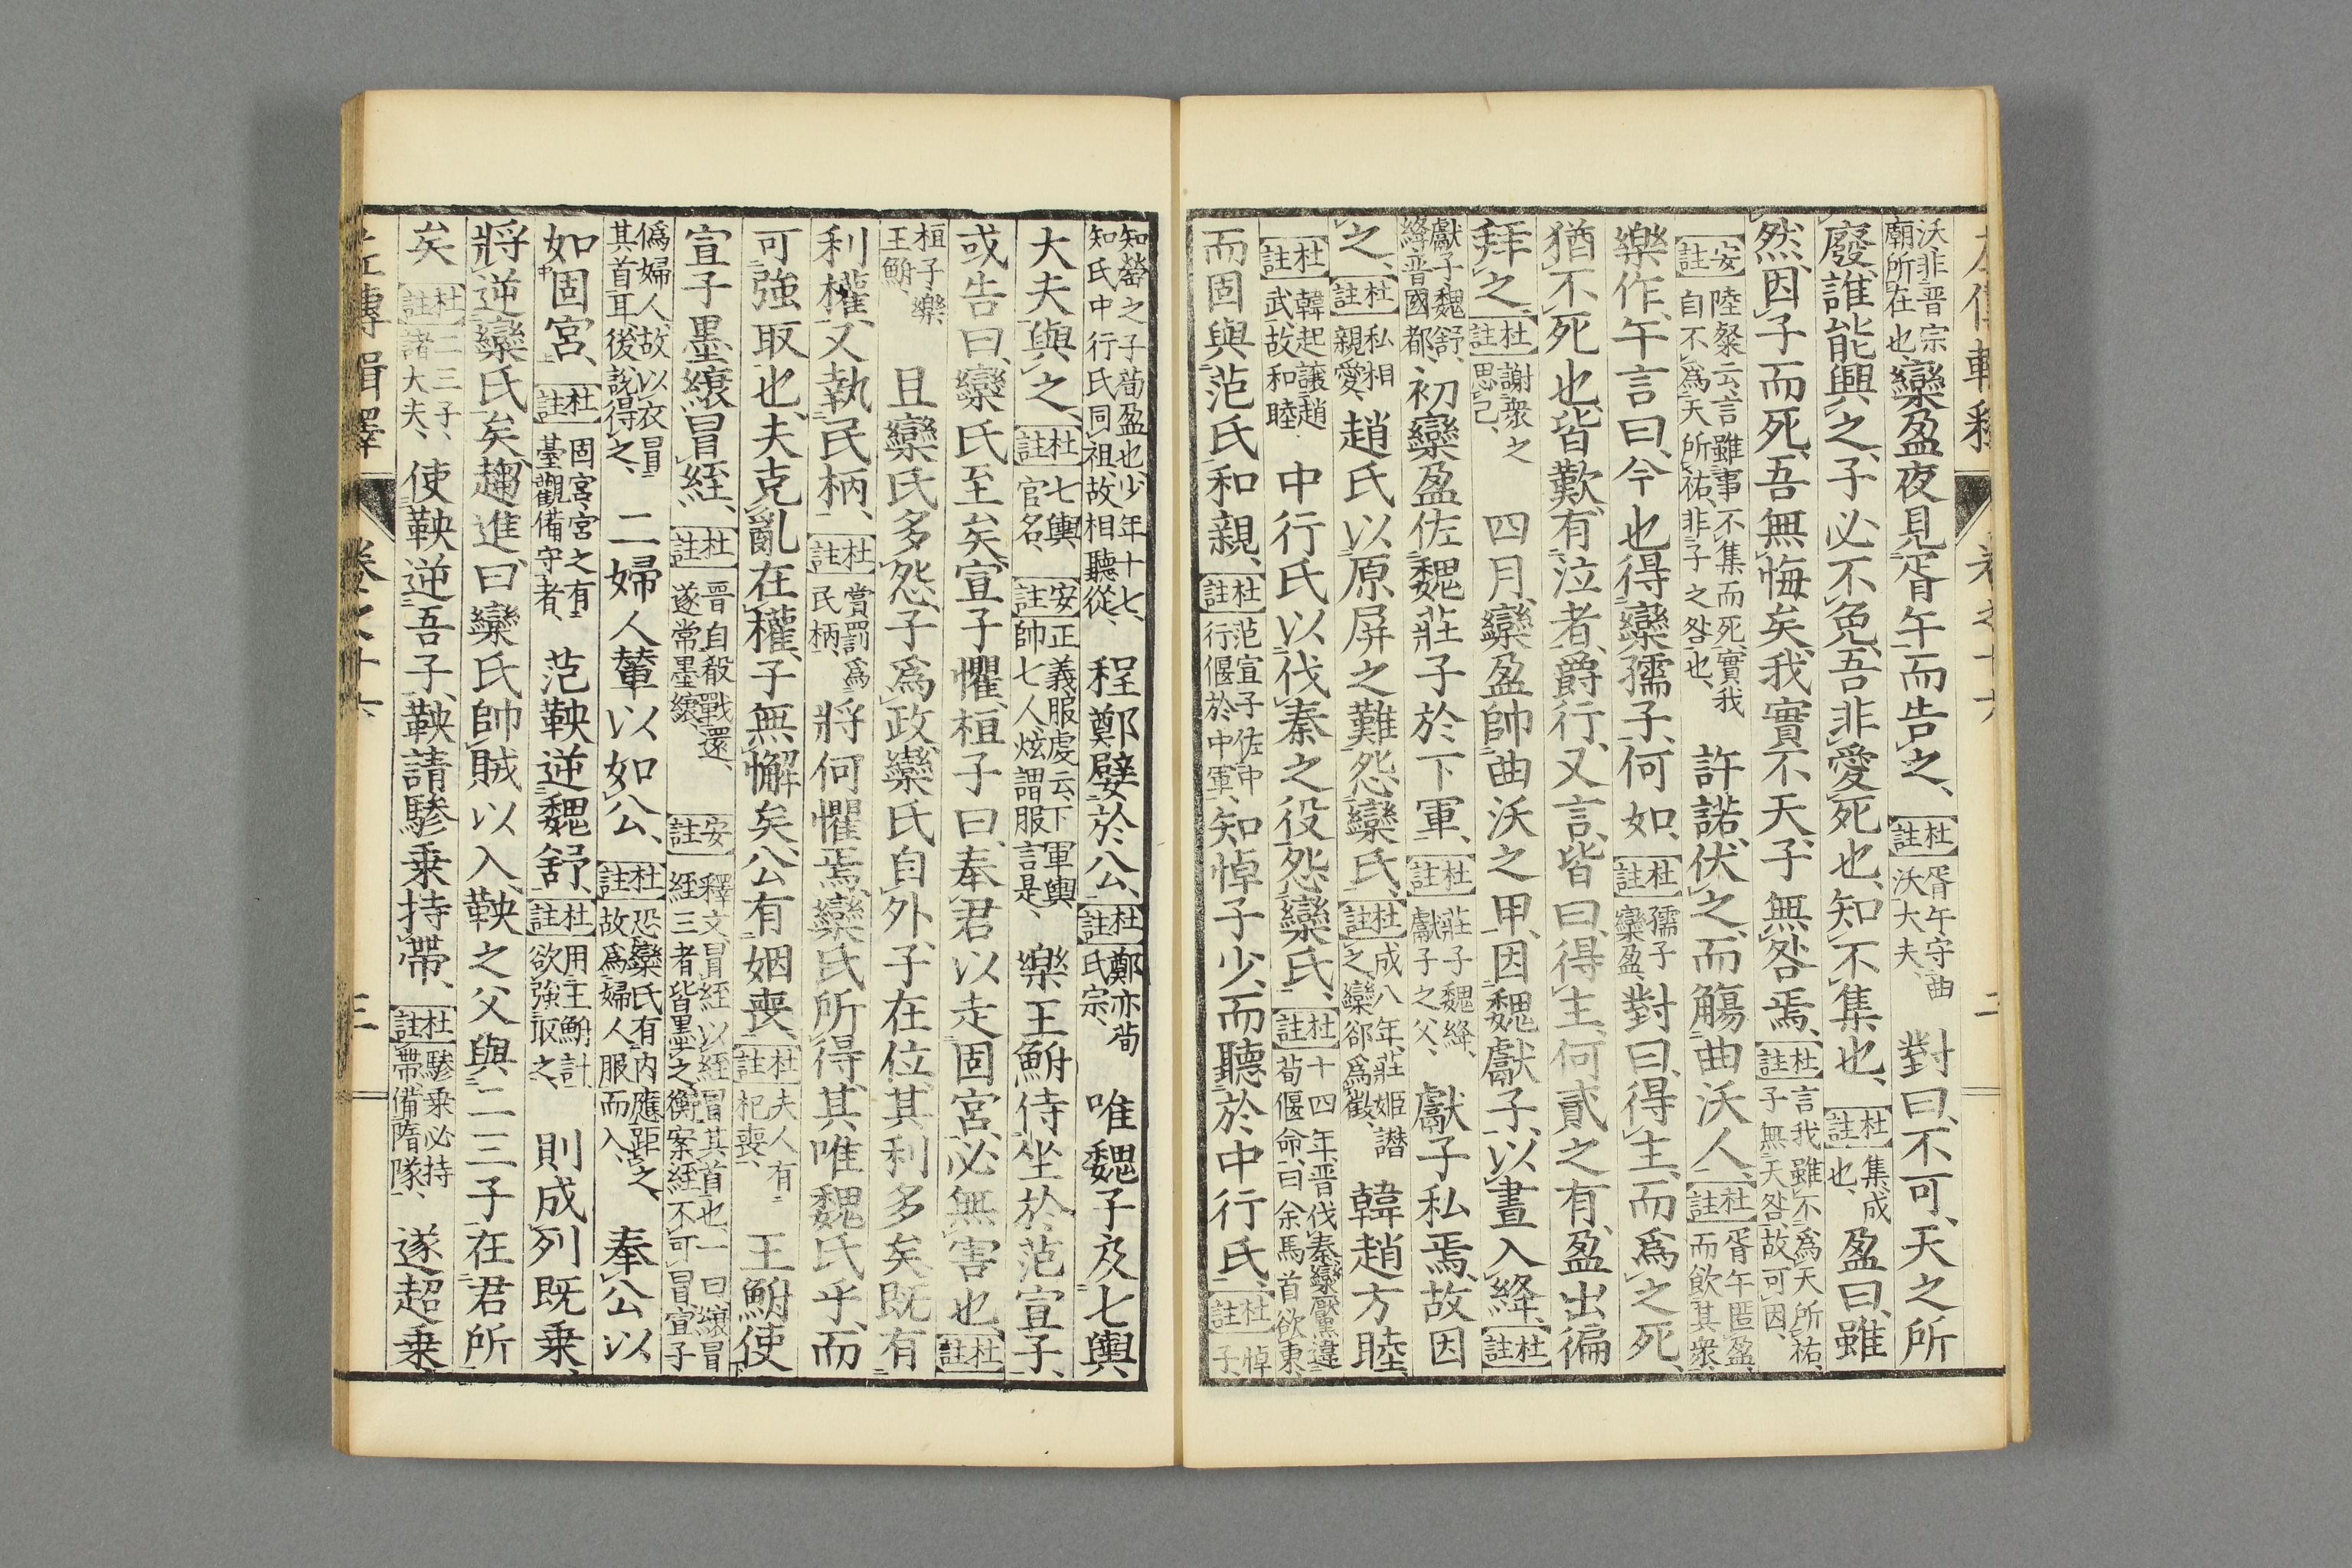 左傳輯釋 卷之十六 二
沃非晋宗廟所在也、欒盈夜見胥午而告之、【杜註】胥午、守曲沃大夫、對曰、不可、天之所
廢、誰能興之、子必不免、吾非愛死也、知不集也、【杜註】集、成也、盈曰、雖
然、因子而死、吾無悔矣、我實不天、子無咎焉、【杜註】言我雖不爲天所祐、子無天咎、故可因、
【安註】陸粲云、言雖事不集而死、實我自不爲天所祐、非子之咎也、許諾、伏之、而觴曲沃人、【杜註】胥午匿盈、而飲其衆、
樂作、午言曰、今也得欒孺子、何如、【杜註】孺子欒盈、對曰、得主、而爲之死、
猶不死也、皆歎、有泣者、爵行、又言、皆曰、得主、何貳之有、盈出徧
拜之、【杜註】謝衆之思己、四月、欒盈帥曲沃之甲、因魏獻子、以晝入絳、【杜註】
獻子魏舒、絳晋國都、初欒盈佐魏莊子於下軍、【杜註】莊子魏絳、獻子之父、獻子私焉、故因
之、【杜註】私相親愛、趙氏以原屏之難怨欒氏、【杜註】成八年、莊姬譖之、欒郤爲徵、韓趙方睦、
【杜註】韓起讓趙武、故和睦、中行氏以伐秦之役怨欒氏、【杜註】十四年、晋伐秦、欒黶違荀偃命、曰余馬首欲東、
而固與范氏和親、【杜註】范宣子佐中行偃於中軍、知悼子少、而聽於中行氏、【杜註】悼子、
知罃之子荀盈也、少年十七、知氏中行氏同祖、故相聽從、程鄭嬖於公、【杜註】鄭亦荀氏宗、唯魏子及七輿
大夫與之、【杜註】七輿官名、【安註】正義服虔云、下軍輿帥七人、炫謂服言是、樂王鮒侍坐於范宣子、
或告曰、欒氏至矣、宣子懼、桓子曰、奉君以走固宮、必無害也、【杜註】
桓子樂王鮒、且欒氏多怨、子爲政、欒氏自外、子在位、其利多矣、既有
利權、又執民柄、【杜註】賞罰爲民柄、將何懼焉、欒氏所得、其唯魏氏乎、而
可強取也、夫克亂在權、子無懈矣、公有姻喪、【杜註】夫人有杞喪、王鮒使
宣子墨縗冒絰、【杜註】晉自殽戰還、遂常墨縗、【安註】釋文、冒絰以絰冒其首也、一曰縗冒絰三者皆墨之、衡案絰不可冒宣子
僞婦人、故以衣冒其首耳、後說得之、二婦人輦以如公、【杜註】恐欒氏有内應距之、故爲婦人服而入、奉公以
如固宮、【杜註】固宮、宮之有臺觀備守者、范鞅逆魏舒、【杜註】用王鮒計欲強取之、則成列既乗、
將逆欒氏矣、趨進曰、欒氏帥賊以入、鞅之父與二三子在君所
矣、【杜註】二三子、諸大夫、使鞅逆吾子、鞅請驂乗持帶、【杜註】驂乗必持帶、備隋隊、遂超乗、
左傳輯釋 卷之十六 三